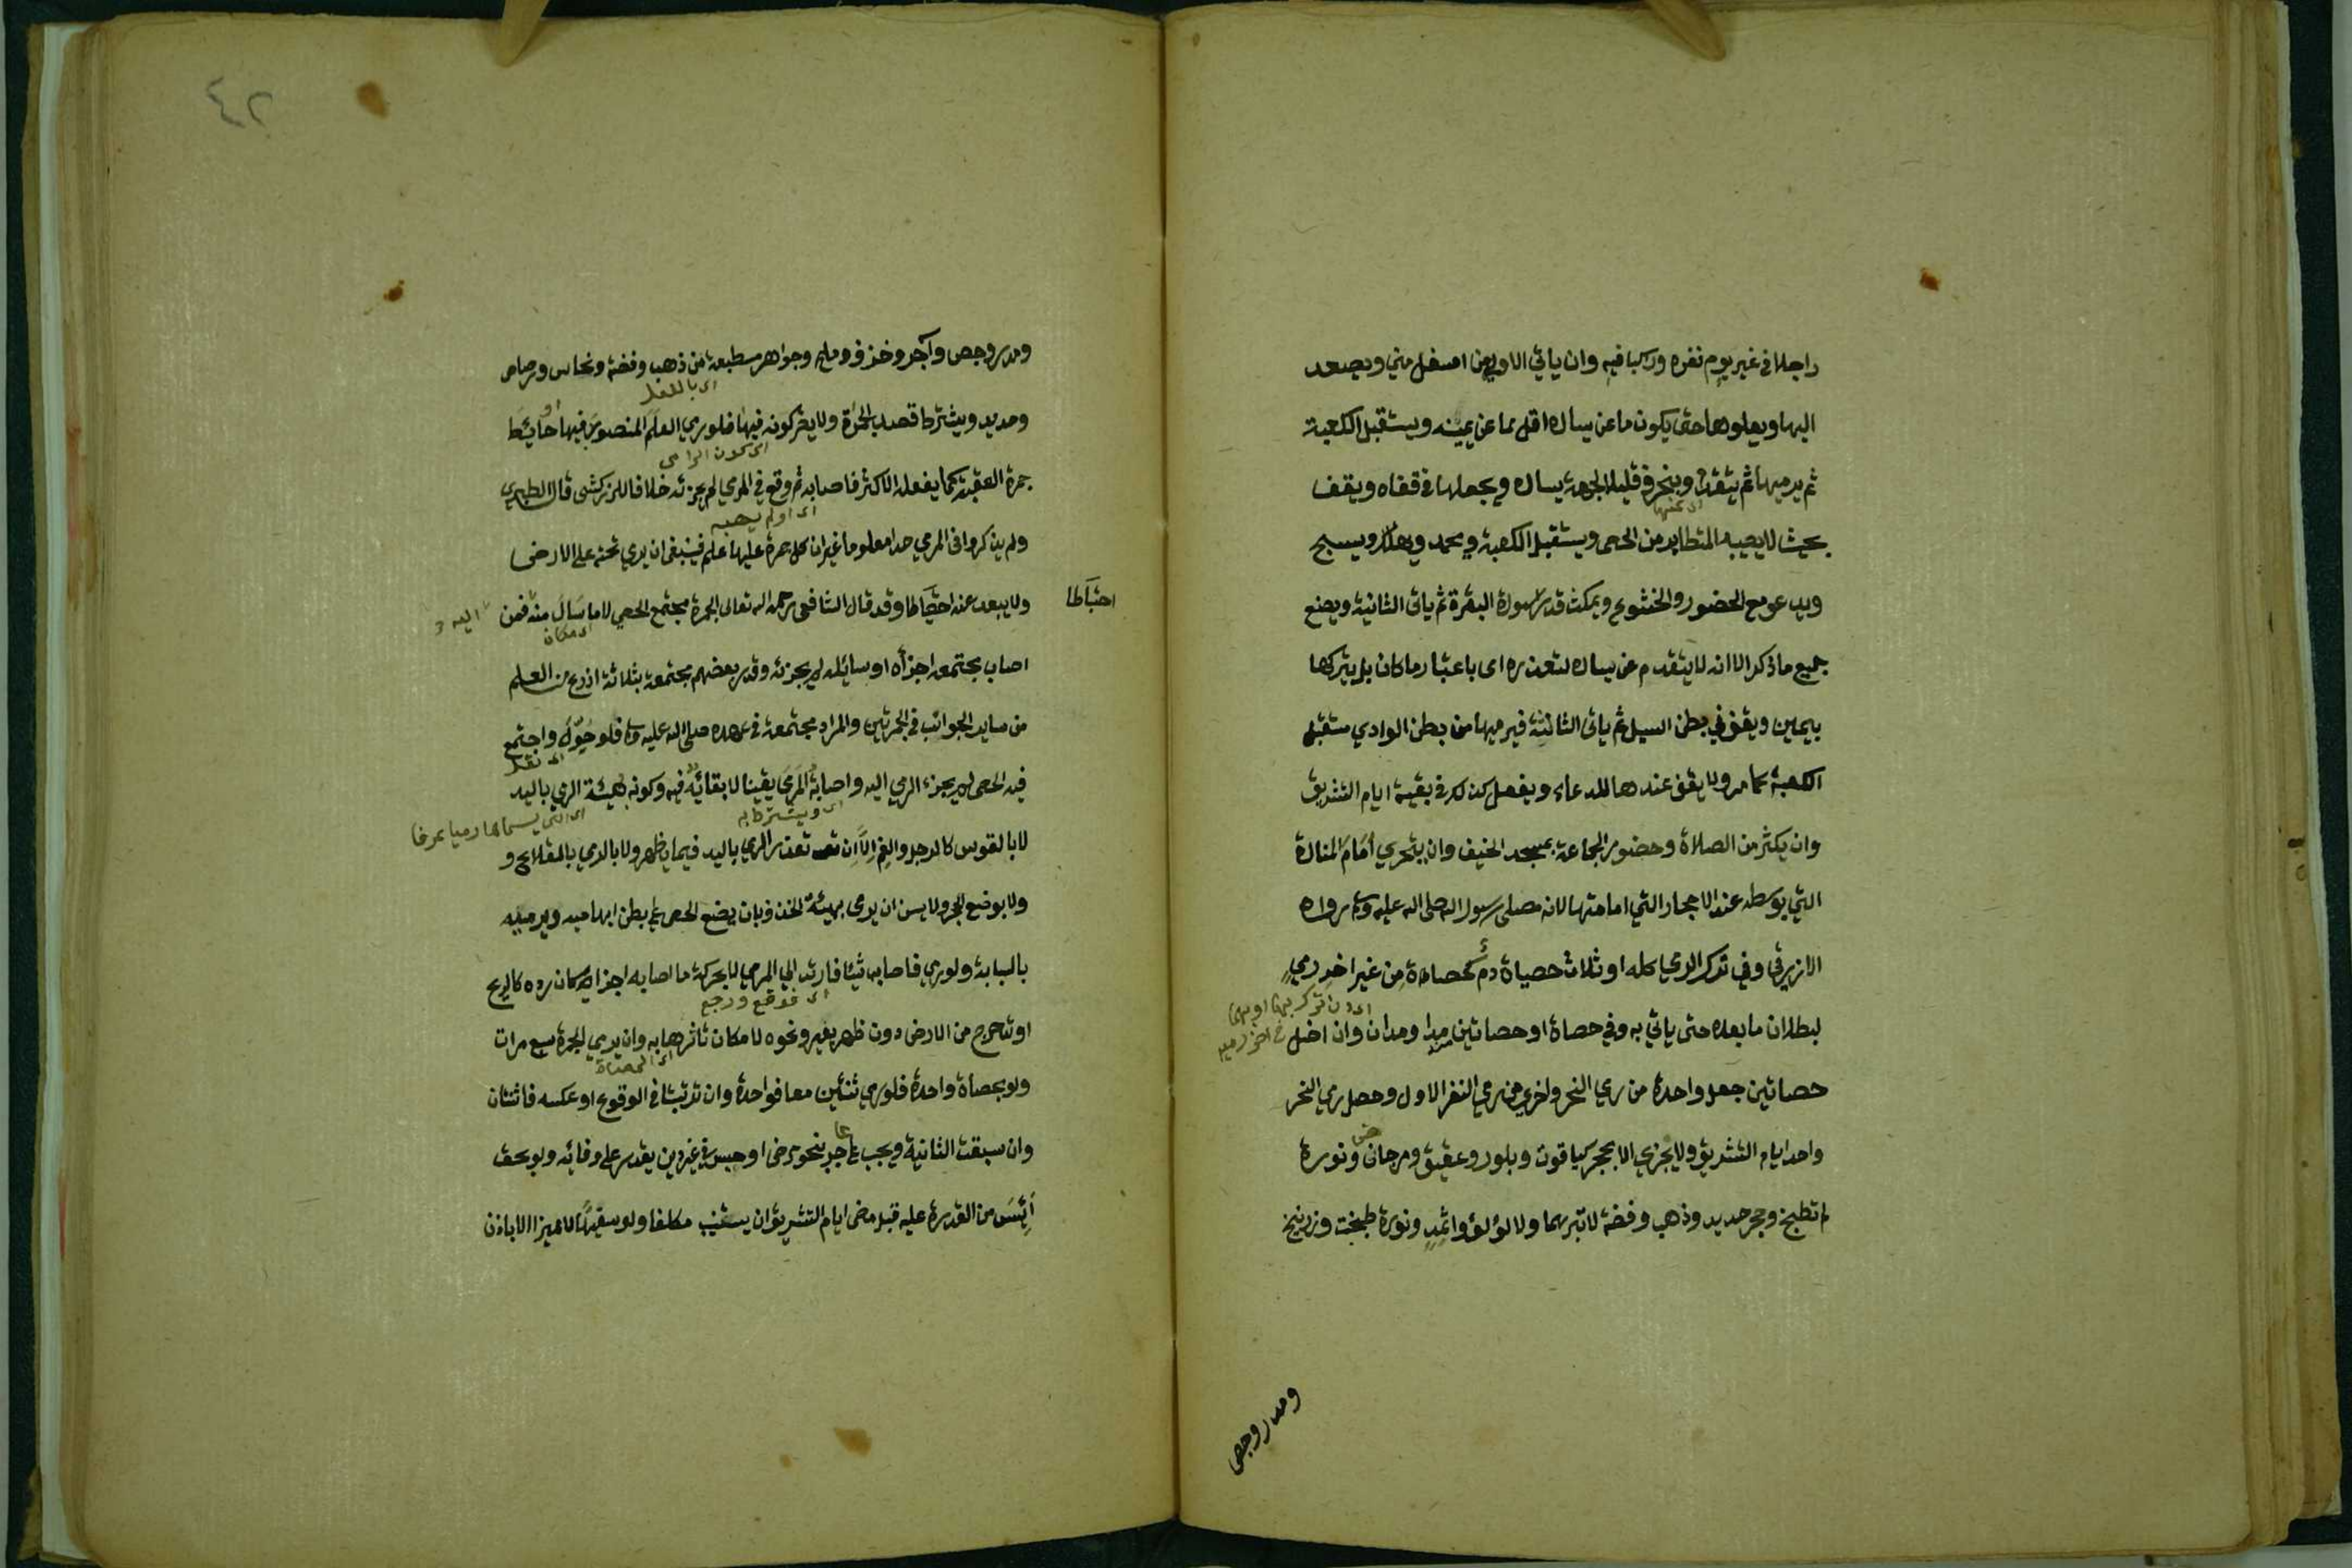 راجلا في غير يوم نفره وركبا فيه وان ياتي الاولى من اسفل مني ويصعد
اليها ويعلوها حتى يكون ما عن يساره اقل مما عن يمينه ويستقبل الكعبة
ثم يرميها ثم يتقدم وينحرف قليلا لجهة يساره ويجعلها في قفاه ويقف
اي عنها
بحيث لا يصيبه المتطاير من الحصى ويستقبل الكعبة ويحمد ويهلل ويسبح
ويدعو مع الحضور والخشوع ويمكث قدر سورة البقرة ثم ياتي الثانية ويصنع
جميع ما ذكر الا انه لا يتقدم عن يساره لتعذره اي باعتبار ما كان بل يتركها
بيمين ويقف في بطن السيل ثم ياتي الثالثة فيرميها من بطن الوادي مستقبل
الكعبة كما مر ولا يقف عندها للدعاء ويفعل كذلك في بقية ايام التشريق
وان يكثر من الصلاة وحضور الجماعة بمسجد الخيف وان يتحرى أمَامَ المنارة
التي بوسطه عند الاحجار التي امامتها لانه مصلى رسول الله صلى الله عليه وسلم رواه
الازرقي وفي ترك الرمي كله او ثلاث حصياة دم كحصاة من غير اخر رمي
لبطلان ما بعده حتى ياتي به وفي حصاة او حصاتين مد او مدان وان اخل
حصاتين جعل واحدة من رمي النحر واخرى من رمي النفر الاول وحصل رمي النحر
واحد ايام التشريق ولا يجزي الا بحجر كياقوت وبلور وعقيق ومرجان ونورة
لم تطبخ وحجر حديد وذهب وفضة لا تبرهما ولا لؤلؤ واثمد ونورة طبخت وزرنيخ
ومدر وجص

٤٢
ومدر وجص وآجر وخزف وملح وجواهر منطبعة من ذهب وفضة ونحاس ورصاص
وحديد ويشترط قصد الجمرة ولا يضر كونه فيها فلو رمي العلم المنصوب فيها او حائط
جمرة العقبة كما يفعله الاكثر فاصابه ثم وقع في المرمي لم يجزئه خلافا للزركشي قال الطبري
ولم يذكروا في المرمي حدا معلوما غير ان كل جمرة عليها علم فينبغي ان يرمي تحته على الارض
ولا يبعد عنه احتياطا وقد قال الشافعي رحمه الله تعالى الجمرة مجتمع الحصي لا ما سَالَ منه فمن
احتياطا
اصاب مجتمعه اجزأه او سائله لم يجزئه وقدر بعضهم مجتمعه بثلاثة اذرع من العلم
من ساير الجوانب في الجمرتين والمراد مجتمعه في عهده صلى الله عليه وسلم فلو حُوِّلَ واجتمع
اي نقل
فيه الحصى لم يجزء الرمي اليه واصابة المرمَي يقينا لا بقائِه فيه وكونه بهيئة الرمي باليد
اي ويشترط به
اي التي يسماها رميا عرفا
لا بالقوس كالرجل والفم الا ان تعذر الرمي باليد فيما يظهر ولا بالرمي بالمقلاع و
ولا بوضع الحجر ولا يسن ان يرمى بهيئة الخذف بان يضع الحصى على بطن ابهاميه ويرميه
بالسبابة ولو رمي فاصابه شيئا فارتد الى المرمي لا بحركة ما اصابه اجزا كان رده كالريح
اي فوقع ورجع
او تدحرج من الارض دون ظهر بعير ونحوه لامكان تاثرها به وان يرمي الجمرة سبع مرات
ولو بحصاة واحدة فلو رمي ثنتين معا فواحدة وان ترتبتا في الوقوع او عكسه فاثنتان
وان سبقت الثانية ويجب على عاجز بنحو مرض او حبس في غير دين يقدر على وفائه ولو بحق
أَيِسَ من القدرة عليه قبل مضي ايام التشريق ان يستنيب مكلفا ولو سفيها لا مميزا الا باذن